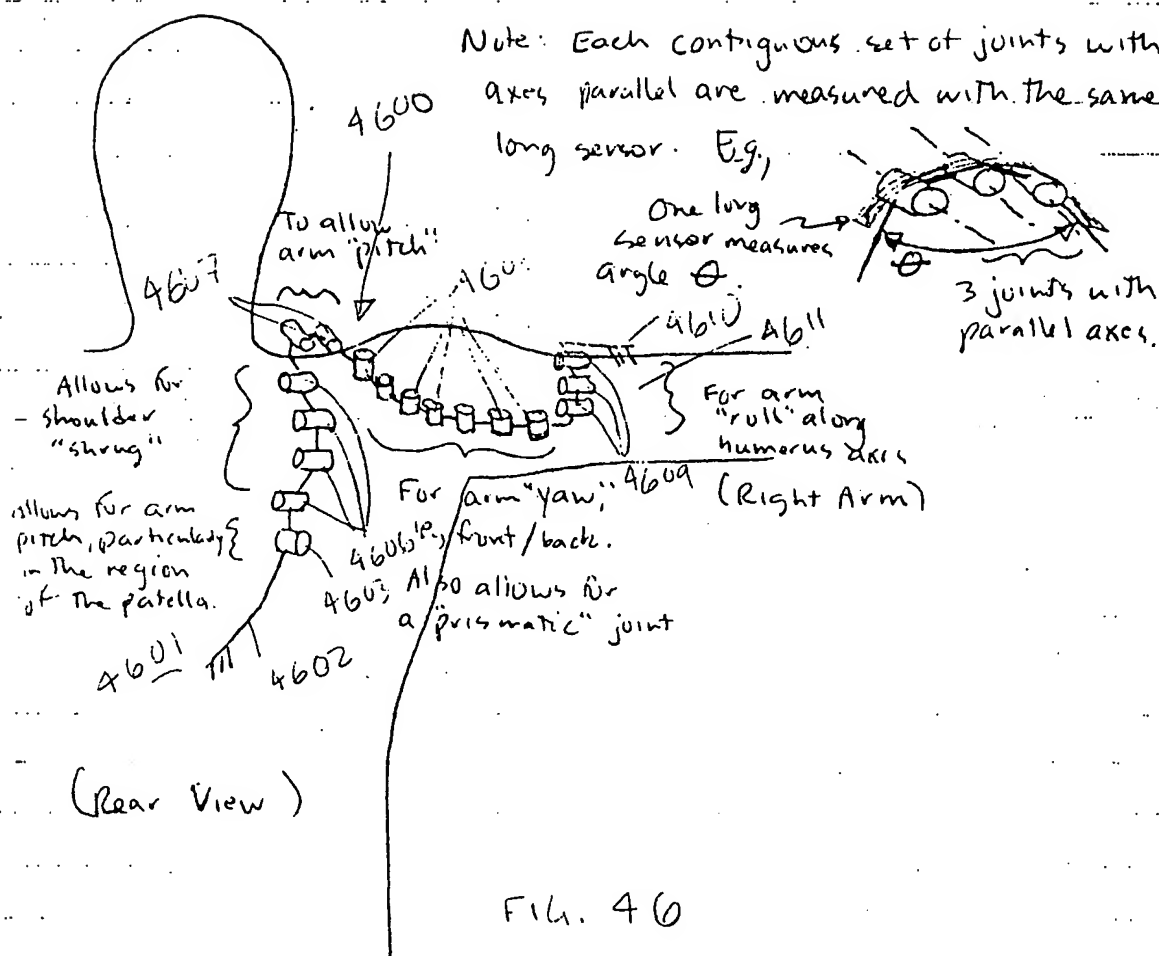 Note: Each contiguous set of joints with
axes parallel are measured with the same
long sensor. E.g.,
4600
To allow
arm "pitch"
One long
sensor measures
angle θ.
θ
3 joints with
parallel axes.
4607
4610
4611
Allows for
shoulder
"shrug"
For arm
"roll" along
humerus axis
4609
(Right Arm)
For arm "yaw,"
ie, front/back.
Also allows for
a "prismatic" joint
Allows for arm
pitch, particularly
in the region
of the patella.
4606
4603
4601
4602
(Rear View)
FIG. 46